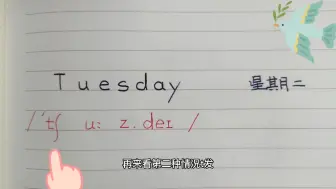 Tuesday 星期二
/ˈtʃ u: z.deɪ /
再来看第二种情况s发